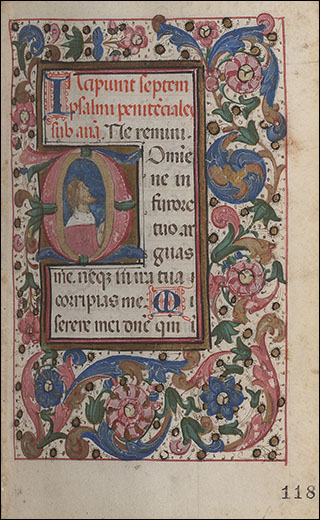 Incipiunt septem
psalmi penitēciales
sub anā. Ne remini.
Domie
ne in
furore
tuo ar
guas
me. neq̃ in ira tua
corripias me. Mi
serere mei dñe qm̃ i
118